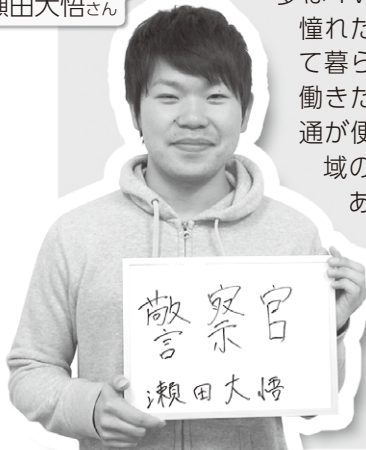 瀬田大悟さん
憧れた
て暮ら
働きた
通が便
域の
あ
警察官
瀬田大悟